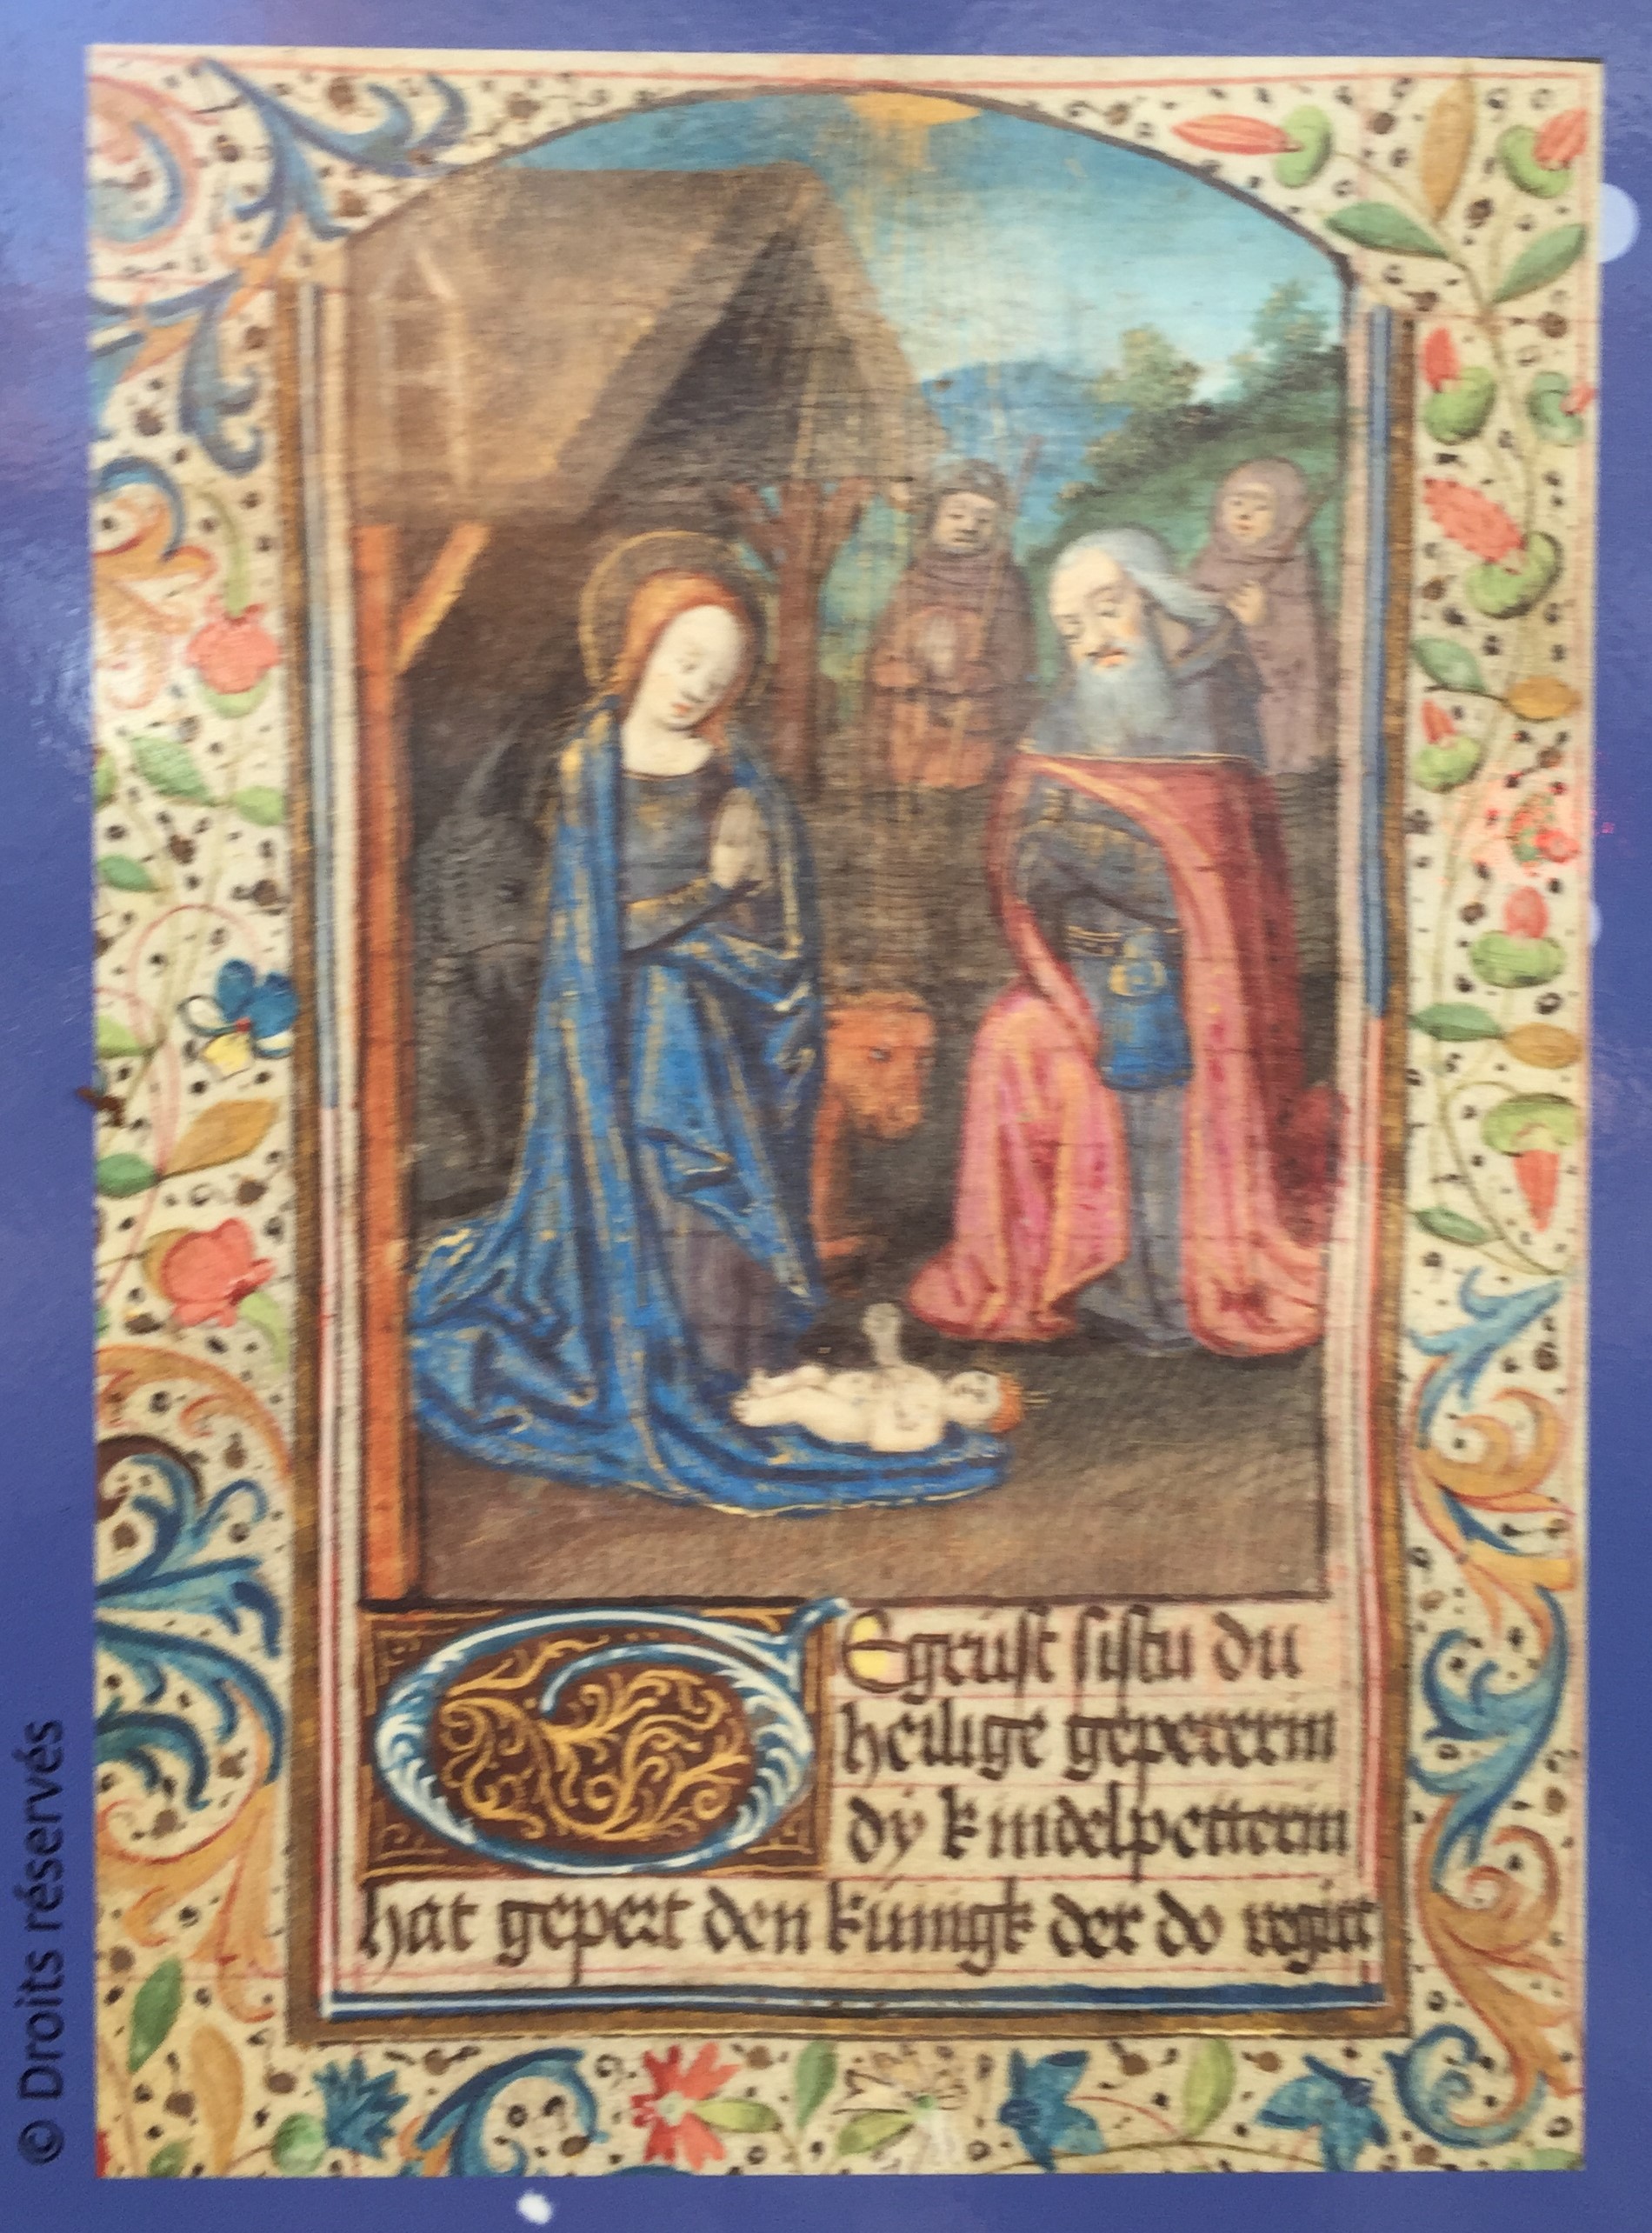 GEgrüst sistu du
heilige gepererin
dÿ kindelpetterin
hat gepert den künigk der do regirt
© Droits réservés